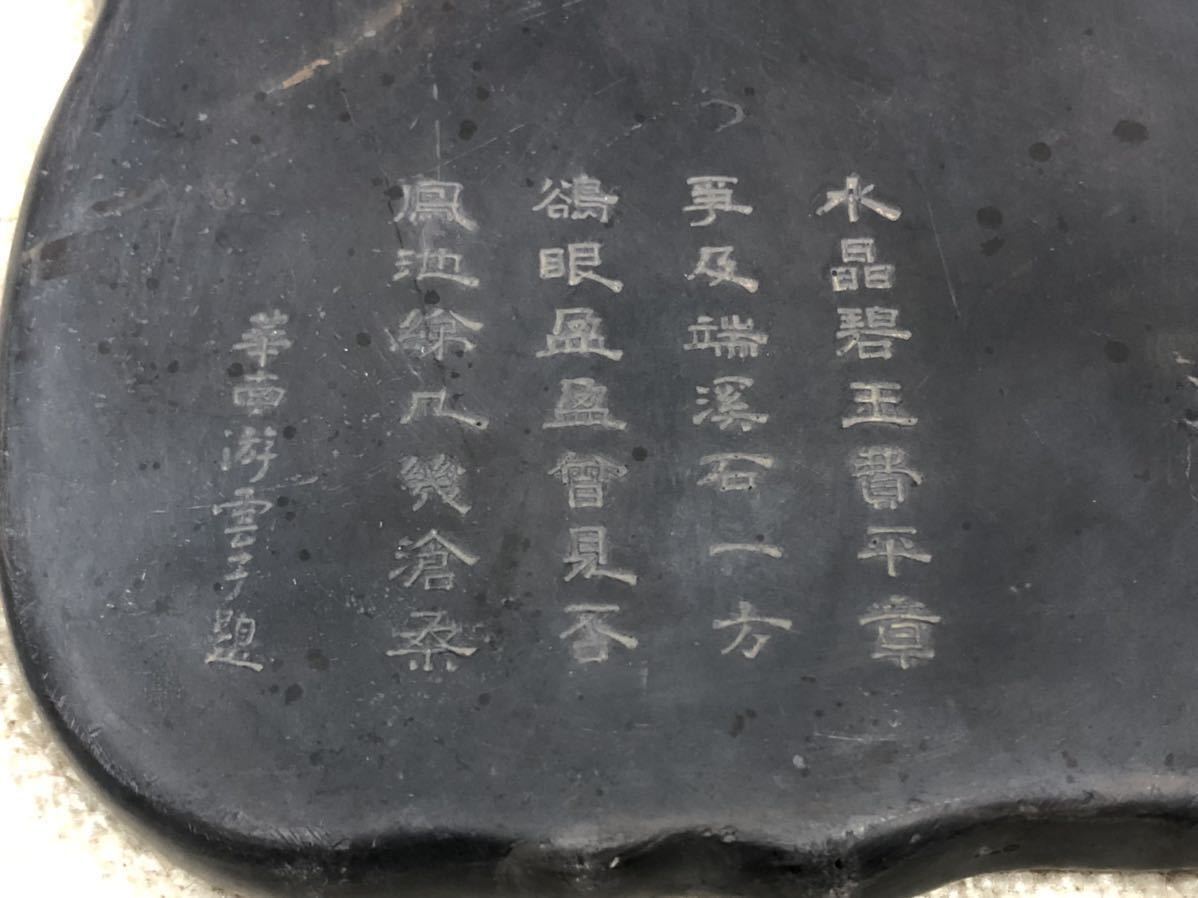 水晶碧玉費平章
爭及端溪石一方
鵒眼盈盈曾見否
鳳池幾滄桑
華西游雲子題